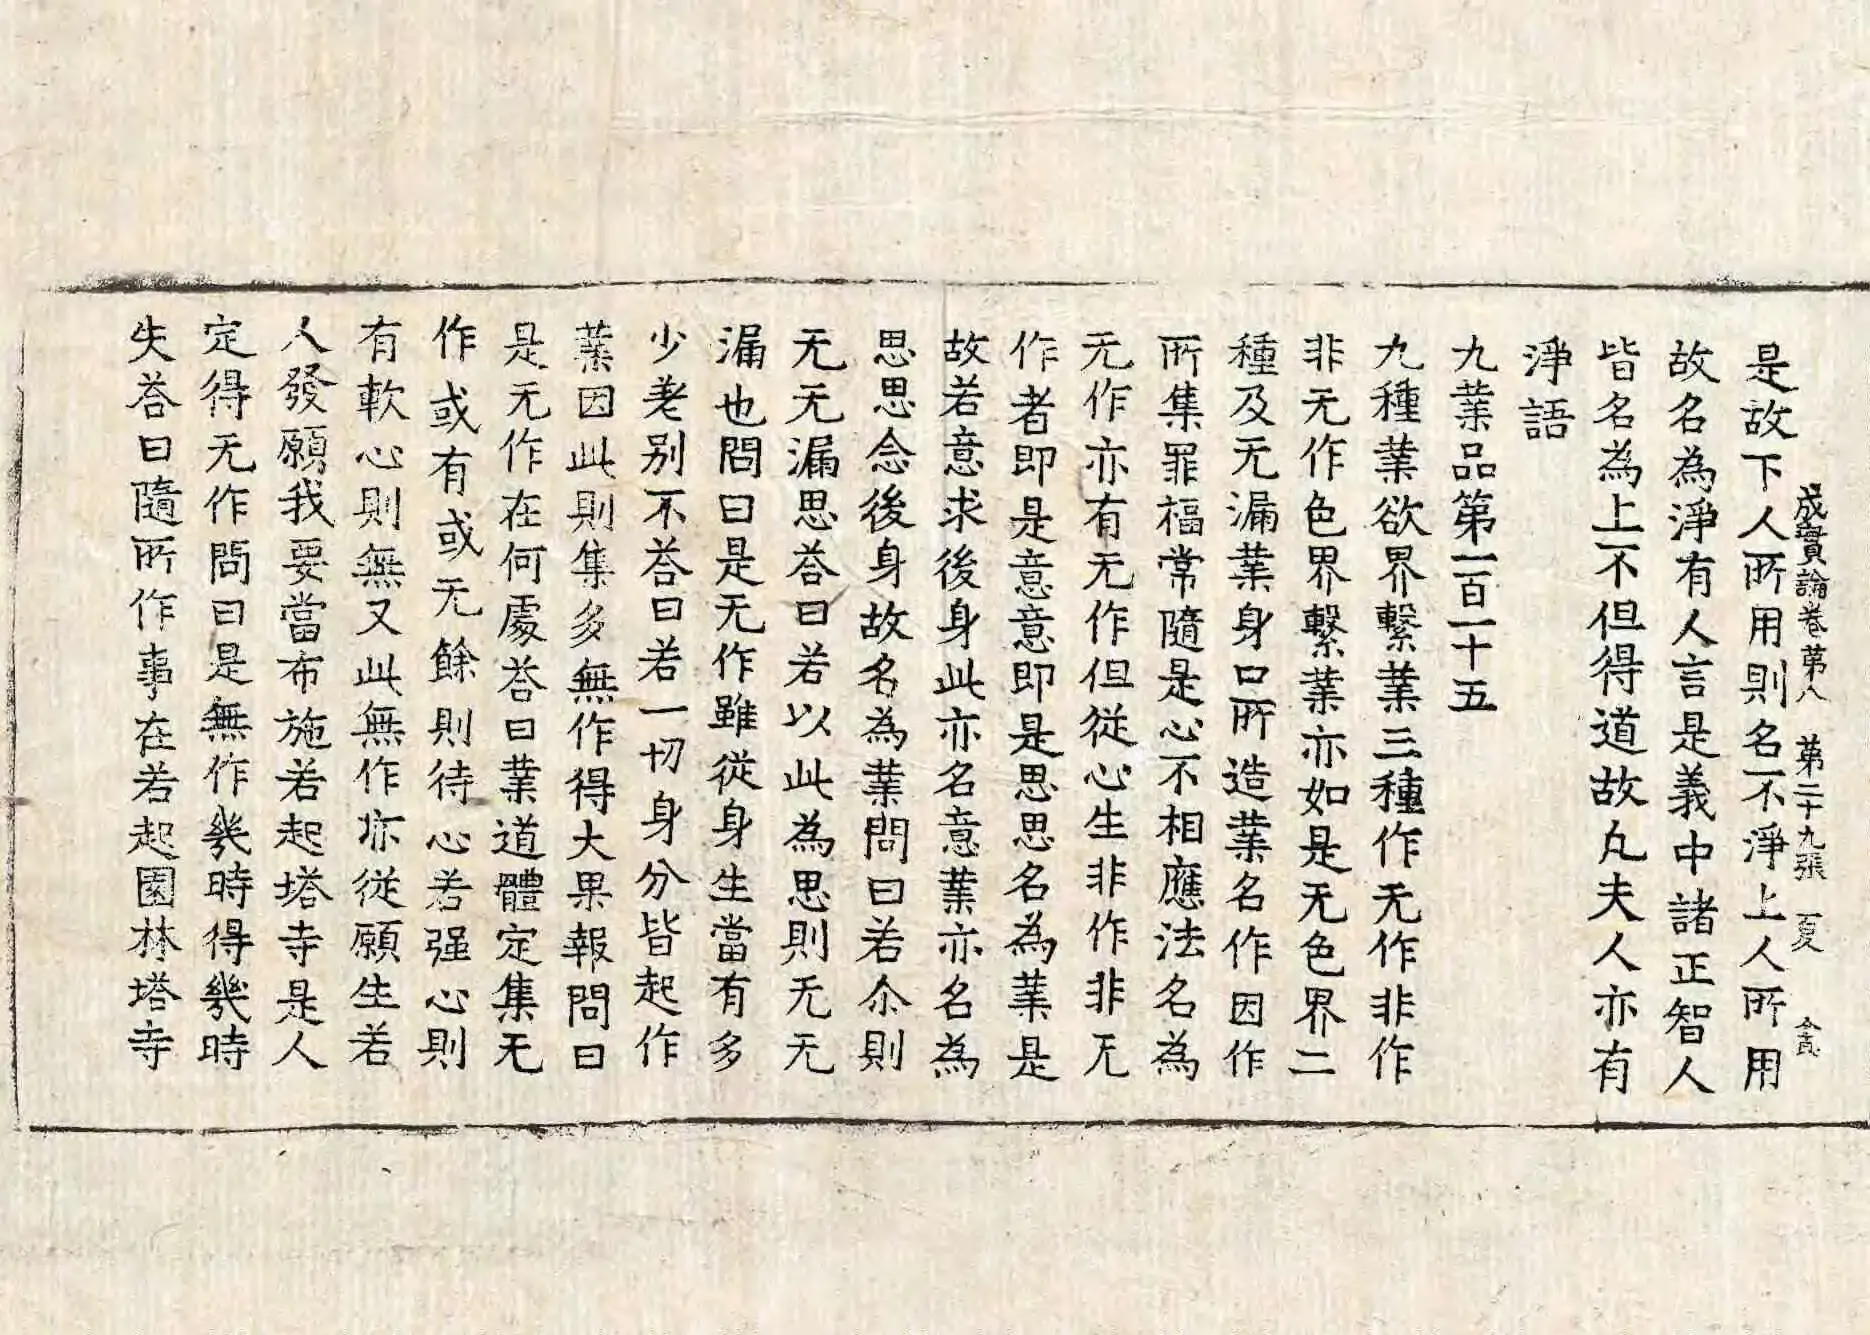 成實論卷第八 第二十九張 夏 禽
是故下人所用則名不淨上人所用
故名為淨有人言是義中諸正智人
皆名為上不但得道故凡夫人亦有
淨語
九業品第一百一十五
九種業欲界繫業三種作无作非作
非无作色界繫業亦如是无色界二
種及无漏業身口所造業名作因作
所集罪福常隨是心不相應法名為
无作亦有无作但從心生非作非无
作者即是意意即是思思名為業是
故若意求後身此亦名意業亦名為
思思念後身故名為業問曰若尒則
无无漏思荅曰若以此為思則无无
漏也問曰是无作雖從身生當有多
少差别不荅曰若一切身分皆起作
業因此則集多無作得大果報問曰
是无作在何處荅曰業道體定集无
作或有或无餘則待心若强心則
有軟心則無又此無作亦從願生若
人發願我要當布施若起塔寺是人
定得无作問曰是無作幾時得幾時
失荅曰隨所作事在若起園林塔寺